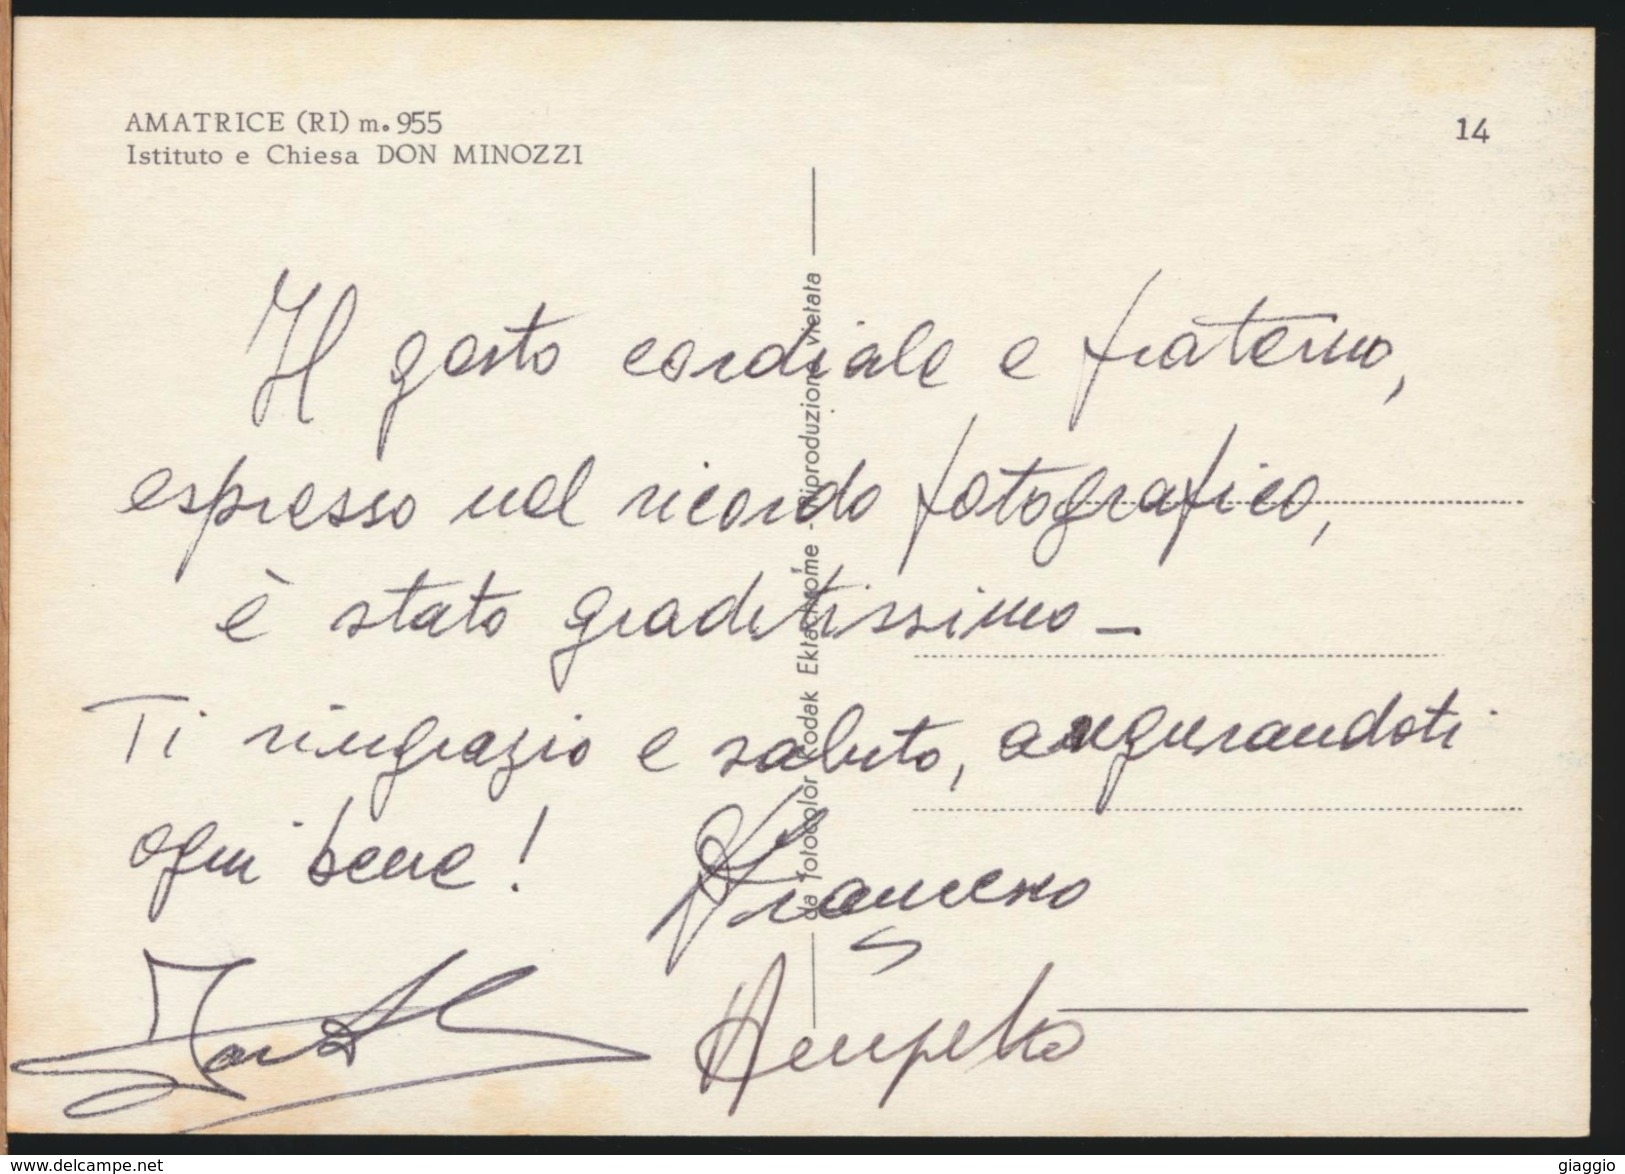 AMATRICE (RI) m. 955
Istituto e Chiesa DON MINOZZI
14
Il gesto cordiale e fraterno,
espresso nel ricordo fotografico,
è stato graditissimo -
Ti ringrazio e saluto, augurandoti
ogni bene!
Francesco
da fotocolor Kodak Ektachrome - Riproduzione vietata
www.delcampe.net
giaggio